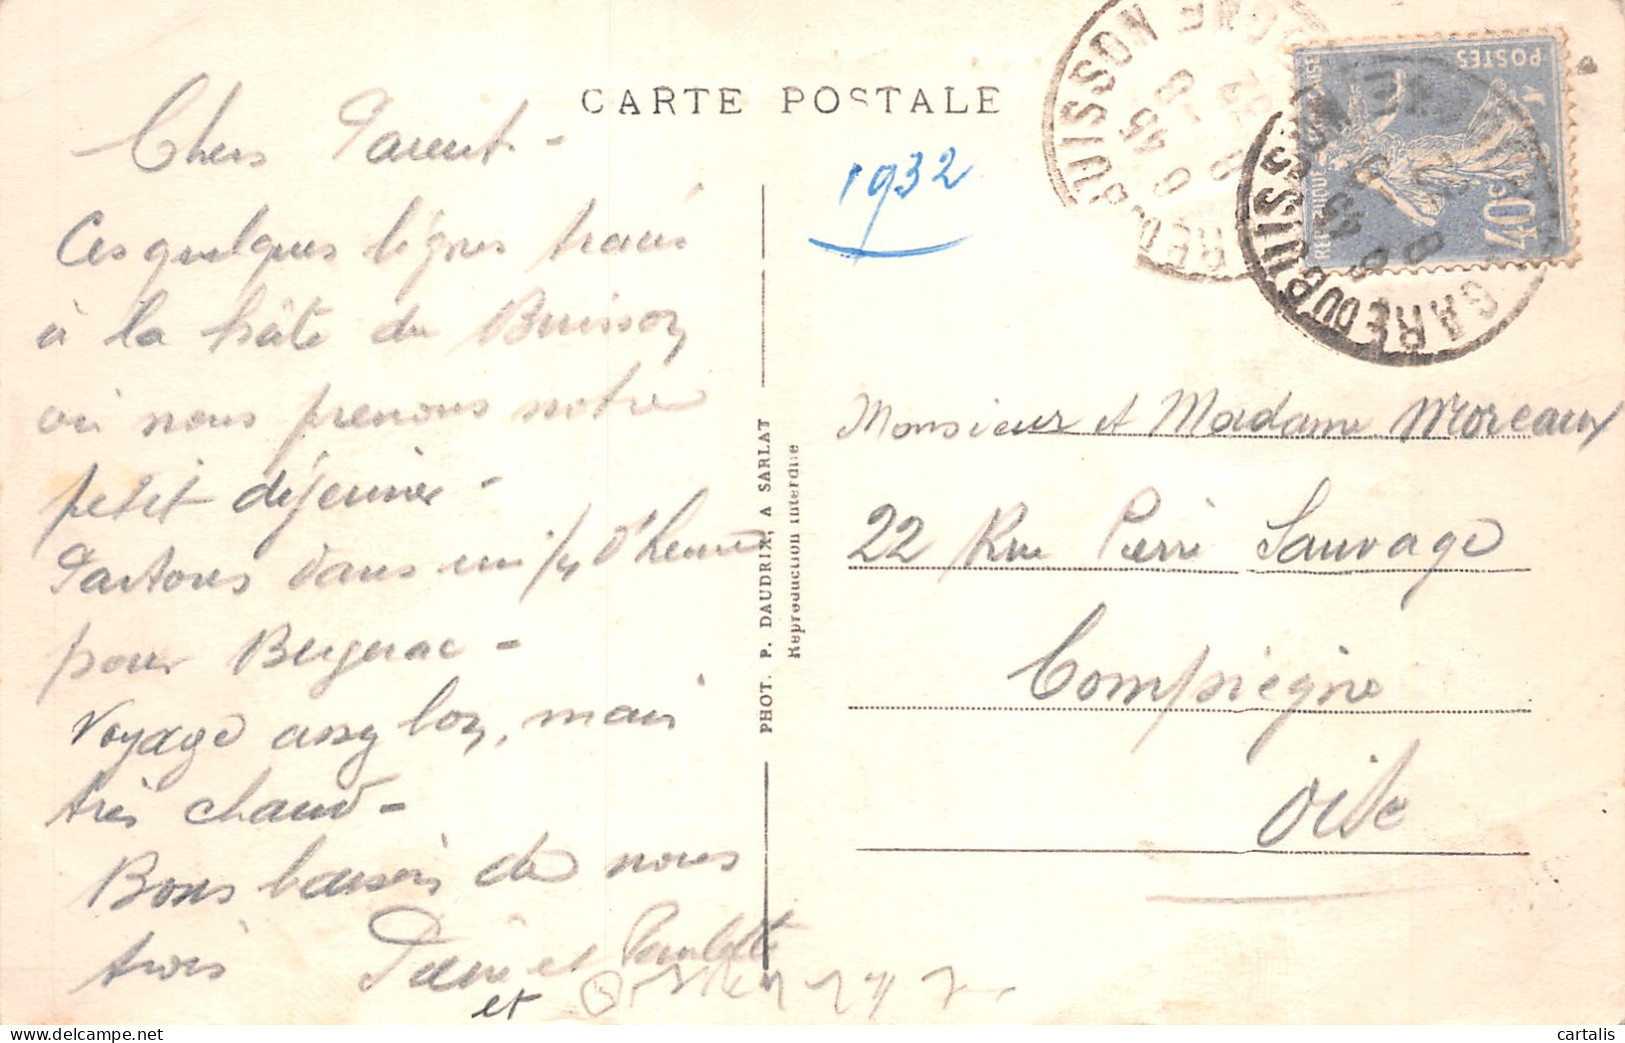 CARTE POSTALE
1932
Chers Parent -
Ces quelques lignes tracés
à la hâte du Buisson
où nous prenons notre
petit déjeuner -
Partons dans un 1/4 d'heure
pour Bergerac -
Voyage assez bon, mais
très chaud -
Bons baisers de nous
trois
et Paulette
et
PHOT. P. DAUDRIX, A SARLAT
Reproduction interdite
GARE DU BUISSON
GARE DU BUISSON
POSTES
40c
Monsieur et Madame Moreaux
22 Rue Pierre Sauvage
Compiègne
Oise
cartalis
delcampe.net